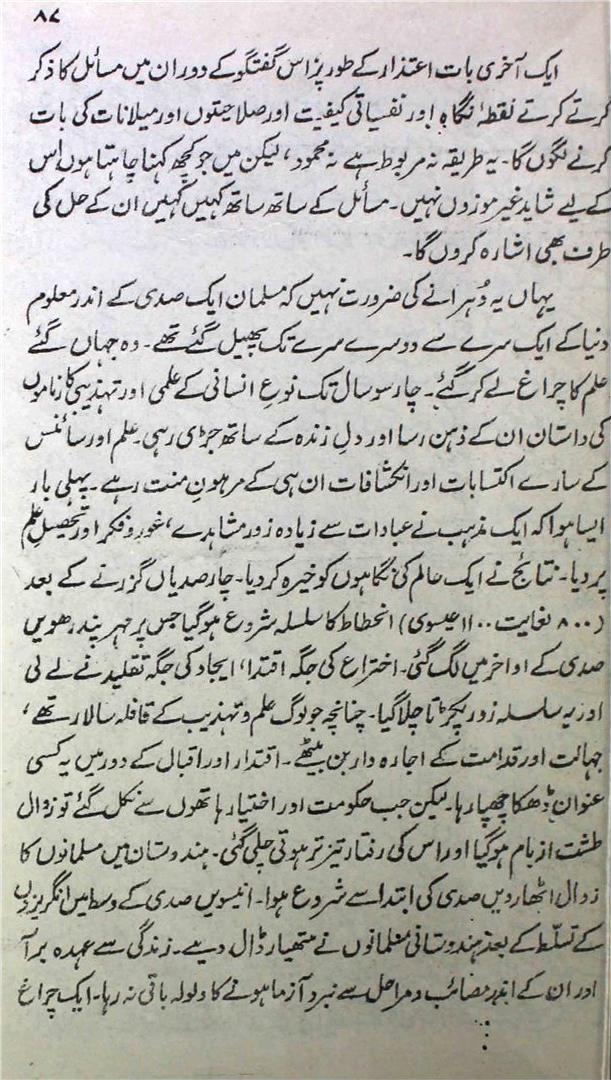 ۸۷
ایک آخری بات اعتذار کے طور پر اس گفتگو کے دوران میں مسائل کا ذکر
کرتے کرتے نقطۂ نگاہ اور نفسیاتی کیفیت اور صلاحیتوں اور میلانات کی بات
کرنے لگوں گا۔ یہ طریقہ نہ مربوط ہے نہ محمود، لیکن میں جو کچھ کہنا چاہتا ہوں اس
کے لیے شاید غیر موزوں نہیں۔ مسائل کے ساتھ ساتھ کہیں کہیں ان کے حل کی
طرف بھی اشارہ کروں گا۔
یہاں یہ دُہرانے کی ضرورت نہیں کہ مسلمان ایک صدی کے اندر معلوم
دنیا کے ایک سرے سے دوسرے سرے تک پھیل گئے تھے۔ وہ جہاں گئے
علم کا چراغ لے کر گئے۔ چار سو سال تک نوعِ انسانی کے علمی اور تہذیبی کارناموں
کی داستان ان کے ذہن رسا اور دلِ زندہ کے ساتھ جڑی رہی۔ علم اور سائنس
کے سارے اکتسابات اور انکشافات ان ہی کے مرہونِ منت رہے۔ پہلی بار
ایسا ہوا کہ ایک مذہب نے عبادات سے زیادہ زور مشاہدے، غور و فکر اور تحصیلِ علم
پر دیا۔ نتائج نے ایک عالم کی نگاہوں کو خیرہ کر دیا۔ چار صدیاں گزرنے کے بعد
(۸۰۰ لغایت ۱۱۰۰ عیسوی) انحطاط کا سلسلہ شروع ہو گیا جس پر مہر پندرھویں
صدی کے اواخر میں لگ گئی۔ اختراع کی جگہ اقتدا، ایجاد کی جگہ تقلید نے لے لی
اور یہ سلسلہ زور پکڑتا چلا گیا۔ چنانچہ جو لوگ علم و تہذیب کے قافلہ سالار تھے،
جہالت اور قدامت کے اجارہ دار بن بیٹھے۔ اقتدار اور اقبال کے دور میں یہ کسی
عنوان ڈھکا چھپا رہا۔ لیکن جب حکومت اور اختیار ہاتھوں سے نکل گئے تو زوال
طشت از بام ہو گیا اور اس کی رفتار تیز تر ہوتی چلی گئی۔ ہندوستان میں مسلمانوں کا
زوال اٹھارویں صدی کی ابتدا سے شروع ہوا۔ انیسویں صدی کے وسط میں انگریزوں
کے تسلّط کے بعد ہندوستانی مسلمانوں نے ہتھیار ڈال دیے۔ زندگی سے عہدہ برآ
اور ان کے مصائب و مراحل سے نبرد آزما ہونے کا ولولہ باقی نہ رہا۔ ایک چراغ